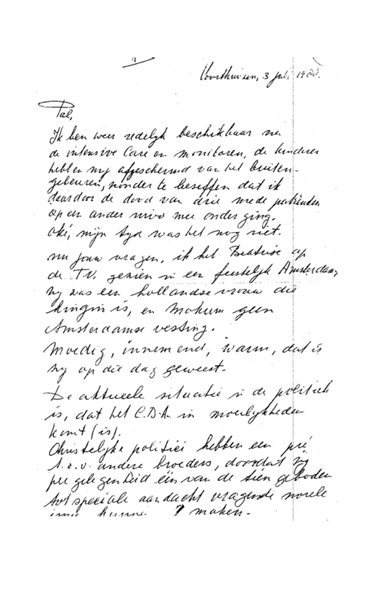 Voorthuizen, 3 juli 19
Pal,
Ik ben weer redelyk beschikbaar na
de intensive Care en monitoren, de kinderen
hebben my afgeschermd van het buiten-
gebeuren, zonder te beseffen dat ik
daardoor de dood van drie mede patienten
op een ander nivo mee onderging.
Oké, mijn tyd was het nog niet.
nu jouw vragen, ik heb Beatrix op
de T.V. gezien in een feestelyk Amsterdam,
zy was een hollandse vrouw die
koningin is, en mokum geen
Amsterdamse vesting.
Moedig, innemend, warm, dat is
zy op die dag geweest.
De aktueele situatie in de politiek
is, dat het C.D.A. in moeilykheden
komt (is).
Christelyke politici hebben een pré
t.o.v. andere broeders, doordat zy
per gelegenheid één van de tien geboden
tot speciale aandacht vragende morele
maken.